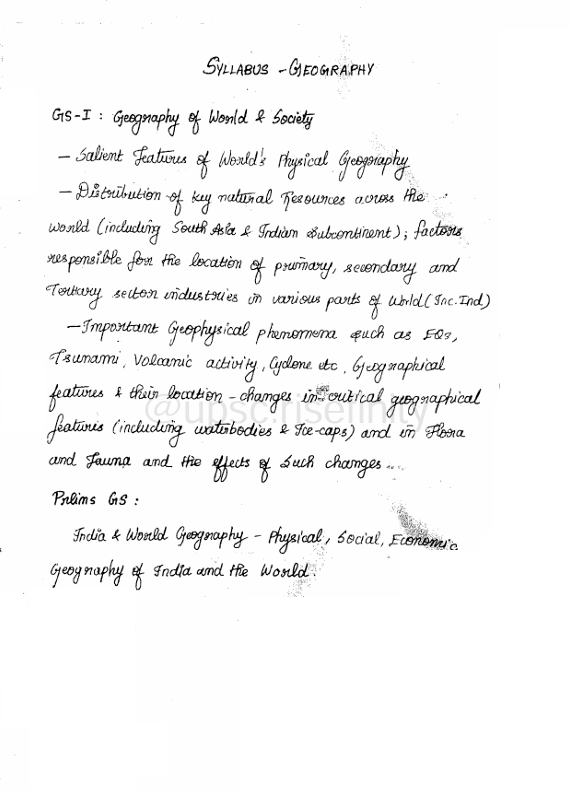 SYLLABUS - GEOGRAPHY
GS-I : Geography of World & Society
- Salient Features of World's Physical Geography
- Distribution of key natural Resources across the
World (including South Asia & Indian Subcontinent); factors
responsible for the location of primary, secondary and
Tertiary sector industries in various parts of World (Inc. Ind)
- Important Geophysical phenomena such as EQs,
Tsunami, Volcanic activity, Cyclone etc, Geographical
features & their location - changes in critical geographical
features (including waterbodies & Ice-caps) and in Flora
and Fauna and the effects of such changes...
Prelims GS :
India & World Geography - Physical, Social, Economic
Geography of India and the World.
@upsc.riselinity